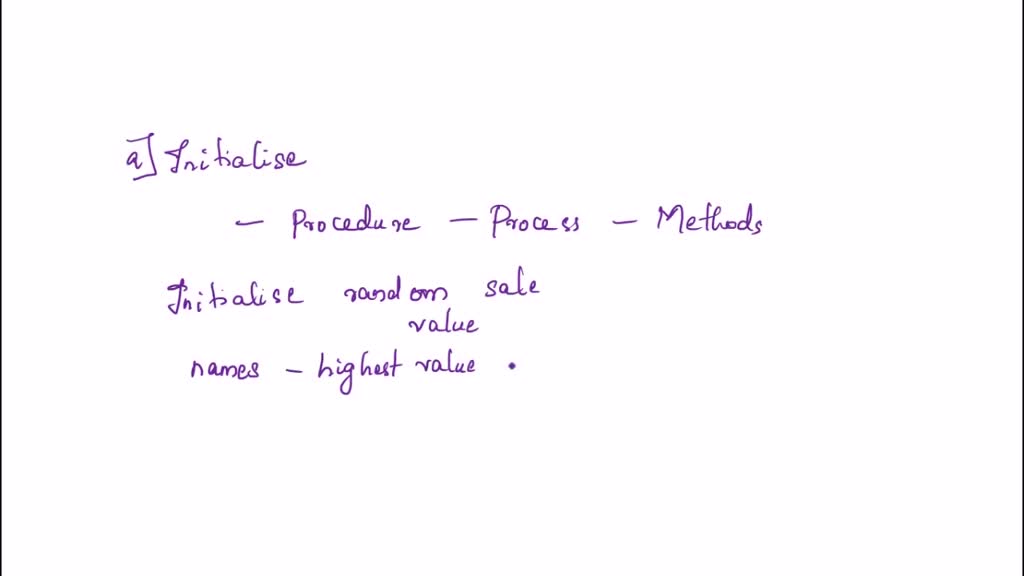 a] Initialise
- Procedure - Process - Methods
Initialise random sale
value
names - highest value .